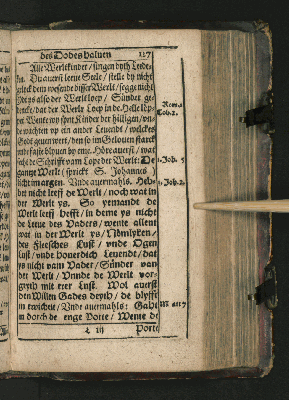 des Dodes haluen 117
Alle Werltkinder / singen dyth Leede-
ken. Du auerst leeue Seele / stelle dy nicht
gelyck dem wesende disser Werlt / segge nicht
Jdt ys also der Werlt loep / Sünder ge-
dencke / dat der Werlt Loep in de Helle löpt
Wente wy synt Kinder der hilligen / vn-
de wachten vp ein ander Leuendt / welckes
Godt geuen wert / den so im Gelouen starck
vnde faste blyuen by eme. Höre auerst / wat
secht de Schrifft vam Lope der Werlt: De
gantze Werlt (sprickt S. Johannes)
licht im argen. Vnde auermahls. Heb-
bet nicht leeff de Werlt / noch wat in
der Werlt ys. So yemande de
Werlt leeff hefft / in deme ys nicht
de Leeue des Vaders / wente allent
wat in der Werlt ys / Nömlyken /
des Flesches Lust / vnde Ogen
Lust / vnde houerdich Leuendt / dat
ys nicht vam Vader / Sünder van
der Werlt / Vnnde de Werlt vor-
geyth mit erer Lust. Wol auerst
den Willen Gades deyth / de blyfft
in ewicheit / Vnde auermahls: Gaht
in dorch de enge Porte / Wente de
L iij Porte
Rom. 1
Coh. 2.
1. Joh. 5
1. Joh. 2.
M att 7